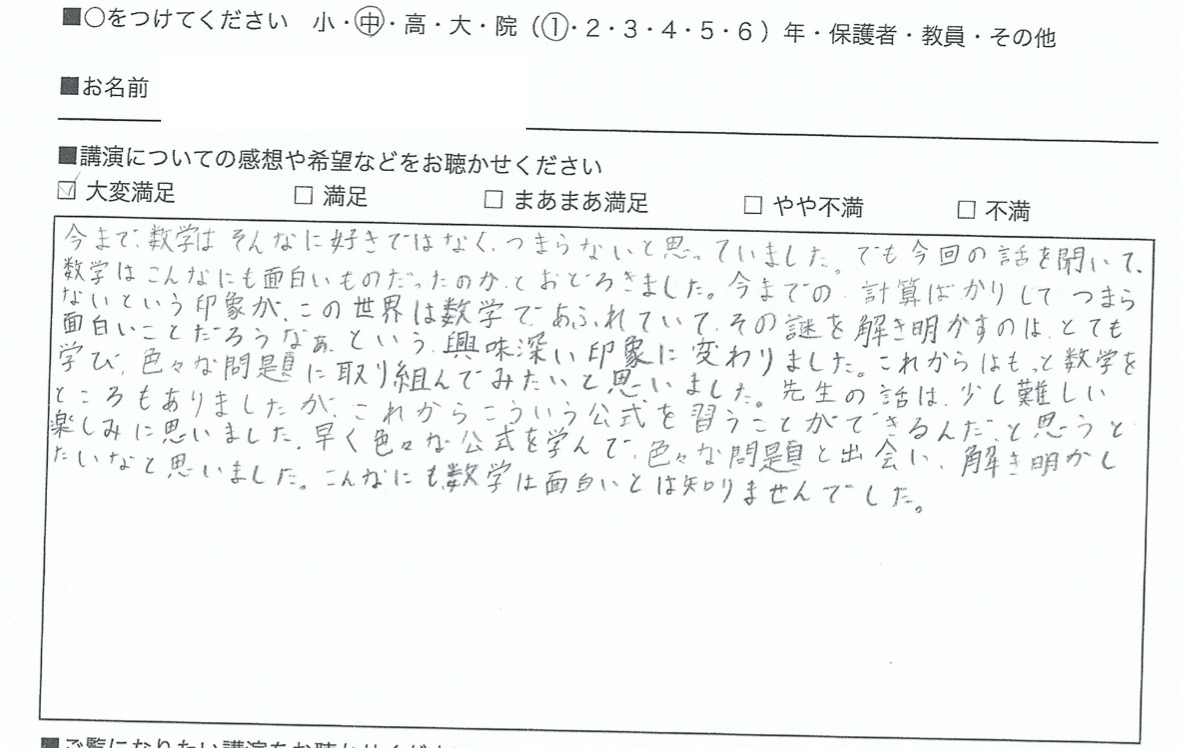 ■○をつけてください　小・中・高・大・院（1・2・3・4・5・6）年・保護者・教員・その他
■お名前
■講演についての感想や希望などをお聴かせください
☑ 大変満足　□ 満足　□ まあまあ満足　□ やや不満　□ 不満
今まで、数学はそんなに好きではなく、つまらないと思っていました。でも今回の話を聞いて、
数学はこんなにも面白いものだったのか、とおどろきました。今までの、計算ばかりしてつまら
ないという印象が、この世界は数学であふれていて、その謎を解き明かすのは、とても
面白いことだろうなぁ、という、興味深い印象に変わりました。これからはもっと数学を
学び、色々な問題に取り組んでみたいと思いました。先生の話は、少し難しい
ところもありましたが、これからこういう公式を習うことができるんだ、と思うと
楽しみに思いました。早く色々な公式を学んで、色々な問題と出会い、解き明かし
たいなと思いました。こんなにも数学は面白いとは知りませんでした。